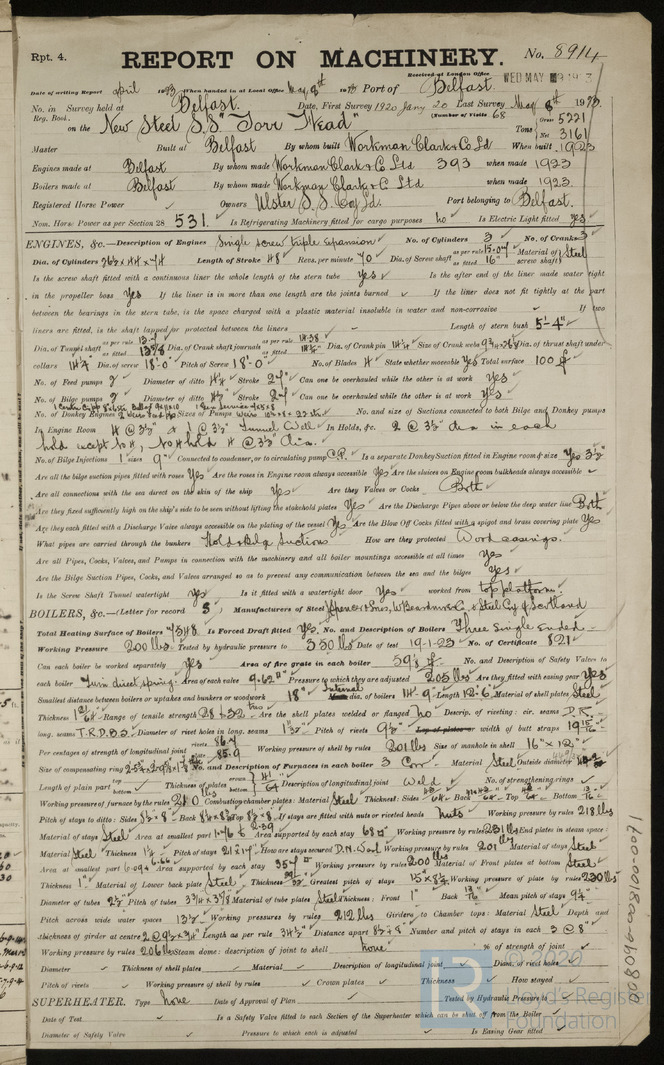 Rpt. 4. REPORT ON MACHINERY. No. 8914
Received at London Office WED MAY 9 1923
Date of writing Report April 1923 When handed in at Local Office May 8th 1923 Port of Belfast.
No. in Survey held at Belfast. Date, First Survey 1920 Jany 20 Last Survey May 8th 1923.
Reg. Book. (Number of Visits 68
on the New Steel S.S. "Torr Head" Tons Gross 5221 Net 3161
Master Built at Belfast By whom built Workman Clark & Co Ld When built 1923
Engines made at Belfast By whom made Workman Clark & Co Ltd 393 when made 1923
Boilers made at Belfast By whom made Workman Clark & Co Ltd when made 1923
Registered Horse Power Owners Ulster S.S. Coy Ld. Port belonging to Belfast.
Nom. Horse Power as per Section 28 531. Is Refrigerating Machinery fitted for cargo purposes no Is Electric Light fitted yes
ENGINES, &c.—Description of Engines Single screw triple expansion No. of Cylinders 3 No. of Cranks 3
Dia. of Cylinders Length of Stroke 48 Revs. per minute 70 Dia. of Screw shaft as per rule 15.07 as fitted 16" Material of screw shaft Steel
Is the screw shaft fitted with a continuous liner the whole length of the stern tube Yes Is the after end of the liner made water tight
in the propeller boss Yes If the liner is in more than one length are the joints burned If the liner does not fit tightly at the part
between the bearings in the stern tube, is the space charged with a plastic material insoluble in water and non-corrosive If two
liners are fitted, is the shaft lapped or protected between the liners Length of stern bush 5'-4"
Dia. of Tunnel shaft as per rule as fitted Dia. of Crank shaft journals as per rule 14.38 as fitted Dia. of Crank pin Size of Crank webs Dia. of thrust shaft under
collars Dia. of screw 18'-0" Pitch of Screw 18'-0" No. of Blades 4 State whether moveable Yes Total surface 100
No. of Feed pumps 2 Diameter of ditto Stroke 27" Can one be overhauled while the other is at work Yes
No. of Bilge pumps 2 Diameter of ditto Stroke 27 Can one be overhauled while the other is at work Yes
No. of Donkey Engines Sizes of Pumps No. and size of Suctions connected to both Bilge and Donkey pumps
In Engine Room 4 @ 3½ & 1 @ 3½ Tunnel Well In Holds, &c. 2 @ 3½ dia in each
hold except No 4, No 4 hold 4 @ 3½ dia.
No. of Bilge Injections 1 sizes 9" Connected to condenser, or to circulating pump C.P. Is a separate Donkey Suction fitted in Engine room & size Yes 3½"
Are all the bilge suction pipes fitted with roses Yes Are the roses in Engine room always accessible Yes Are the sluices on Engine room bulkheads always accessible
Are all connections with the sea direct on the skin of the ship Yes Are they Valves or Cocks Both
Are they fixed sufficiently high on the ship's side to be seen without lifting the stokehold plates Yes Are the Discharge Pipes above or below the deep water line Both
Are they each fitted with a Discharge Valve always accessible on the plating of the vessel Yes Are the Blow Off Cocks fitted with a spigot and brass covering plate Yes
What pipes are carried through the bunkers Hold & Bilge Suctions How are they protected Wood casings.
Are all Pipes, Cocks, Valves, and Pumps in connection with the machinery and all boiler mountings accessible at all times Yes
Are the Bilge Suction Pipes, Cocks, and Valves arranged so as to prevent any communication between the sea and the bilges Yes
Is the Screw Shaft Tunnel watertight Yes Is it fitted with a watertight door Yes worked from top platform.
BOILERS, &c.—(Letter for record S) Manufacturers of Steel J. Spencer & Sons, W. Beardmore & Co. & Steel Coy of Scotland
Total Heating Surface of Boilers 7348 Is Forced Draft fitted Yes. No. and Description of Boilers Three Single ended.
Working Pressure 200 lbs Tested by hydraulic pressure to 350 lbs Date of test 19-1-23 No. of Certificate 821
Can each boiler be worked separately Yes Area of fire grate in each boiler No. and Description of Safety Valves to
each boiler Twin direct spring. Area of each valve 9.62" Pressure to which they are adjusted 205 lbs Are they fitted with easing gear Yes
Smallest distance between boilers or uptakes and bunkers or woodwork 18" Internal dia. of boilers 14'-9 Length 12'-6 Material of shell plates Steel
Thickness Range of tensile strength 28 to 32 Are the shell plates welded or flanged no Descrip. of riveting: cir. seams D.R.
long. seams T.R.D.B.S. Diameter of rivet holes in long. seams Pitch of rivets width of butt straps
Per centages of strength of longitudinal joint rivets 86.7 plate 85.9 Working pressure of shell by rules 201 lbs Size of manhole in shell 16" x 12"
Size of compensating ring No. and Description of Furnaces in each boiler 3 Corr. Material Steel Outside diameter
Length of plain part top bottom Thickness of plates crown bottom Description of longitudinal joint Weld No. of strengthening rings
Working pressure of furnace by the rules 210 Combustion chamber plates: Material Steel Thickness: Sides Back Top Bottom
Pitch of stays to ditto: Sides Back Top If stays are fitted with nuts or riveted heads nuts Working pressure by rules 218 lbs
Material of stays Steel Area at smallest part Area supported by each stay Working pressure by rules 231 lbs End plates in steam space:
Material Steel Thickness Pitch of stays How are stays secured D.N. & W. Working pressure by rules 201 lbs Material of stays Steel
Area at smallest part Area supported by each stay Working pressure by rules 200 lbs Material of Front plates at bottom Steel
Thickness 1" Material of Lower back plate Steel Thickness Greatest pitch of stays Working pressure of plate by rules 230 lbs
Diameter of tubes 2½ Pitch of tubes Material of tube plates Steel Thickness: Front 1" Back Mean pitch of stays
Pitch across wide water spaces 13½ Working pressures by rules 212 lbs Girders to Chamber tops: Material Steel Depth and
thickness of girder at centre Length as per rule Distance apart Number and pitch of stays in each 3 @ 8"
Working pressure by rules 206 lbs Steam dome: description of joint to shell none % of strength of joint
Diameter Thickness of shell plates Material Description of longitudinal joint Diam. of rivet holes
Pitch of rivets Working pressure of shell by rules Crown plates Thickness How stayed
SUPERHEATER. Type none Date of Approval of Plan Tested by Hydraulic Pressure to
Date of Test Is a Safety Valve fitted to each Section of the Superheater which can be shut off from the Boiler
Diameter of Safety Valve Pressure to which each is adjusted Is Easing Gear fitted
008096-008100-0071
© 2020
LR Lloyd's Register Foundation